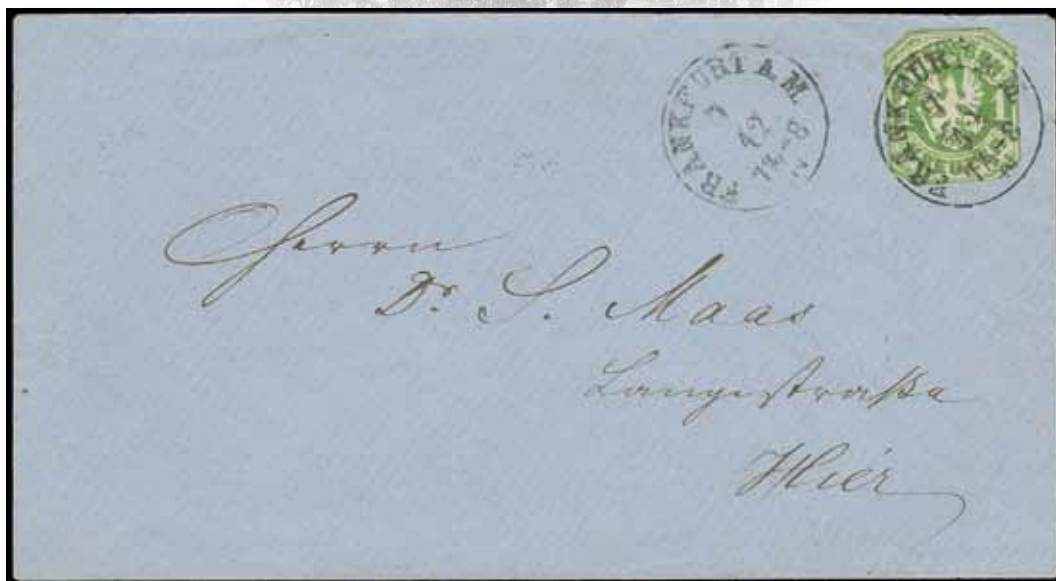 FRANKFURT A. M.
12
FRANKFURT A. M.
1
Herrn
Dr. S. Maas
Langestraße
Hier